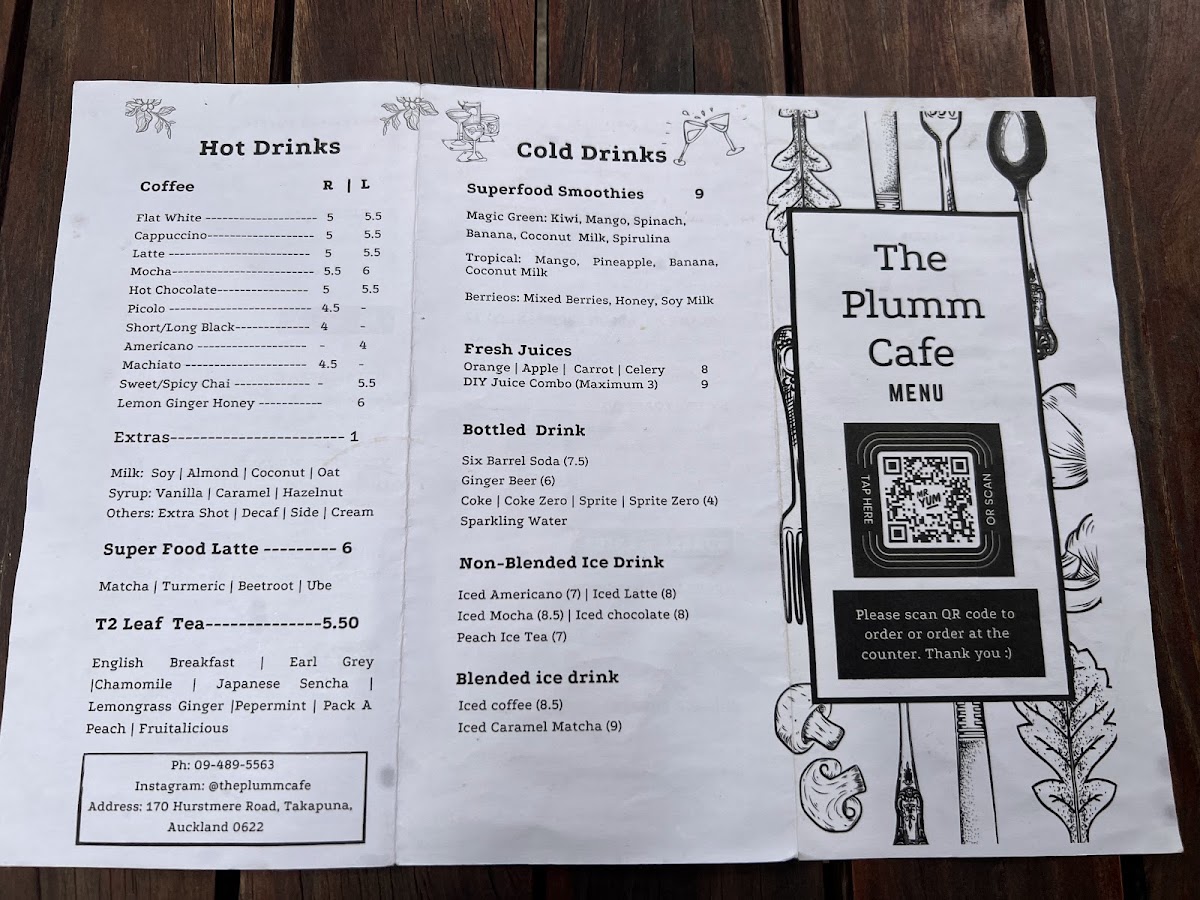 Hot Drinks
Coffee R | L
Flat White ---------------------- 5 5.5
Cappuccino--------------------- 5 5.5
Latte ---------------------------- 5 5.5
Mocha---------------------------- 5.5 6
Hot Chocolate------------------ 5 5.5
Picolo ---------------------------- 4.5 -
Short/Long Black-------------- 4 -
Americano --------------------- - 4
Machiato ------------------------ 4.5 -
Sweet/Spicy Chai -------------- - 5.5
Lemon Ginger Honey ----------- 6
Extras----------------------- 1
Milk: Soy | Almond | Coconut | Oat
Syrup: Vanilla | Caramel | Hazelnut
Others: Extra Shot | Decaf | Side | Cream
Super Food Latte --------- 6
Matcha | Turmeric | Beetroot | Ube
T2 Leaf Tea--------------5.50
English Breakfast | Earl Grey
|Chamomile | Japanese Sencha |
Lemongrass Ginger |Pepermint | Pack A
Peach | Fruitalicious
Ph: 09-489-5563
Instagram: @theplummcafe
Address: 170 Hurstmere Road, Takapuna,
Auckland 0622
Cold Drinks
Superfood Smoothies 9
Magic Green: Kiwi, Mango, Spinach,
Banana, Coconut Milk, Spirulina
Tropical: Mango, Pineapple, Banana,
Coconut Milk
Berrieos: Mixed Berries, Honey, Soy Milk
Fresh Juices
Orange | Apple | Carrot | Celery 8
DIY Juice Combo (Maximum 3) 9
Bottled Drink
Six Barrel Soda (7.5)
Ginger Beer (6)
Coke | Coke Zero | Sprite | Sprite Zero (4)
Sparkling Water
Non-Blended Ice Drink
Iced Americano (7) | Iced Latte (8)
Iced Mocha (8.5) | Iced chocolate (8)
Peach Ice Tea (7)
Blended ice drink
Iced coffee (8.5)
Iced Caramel Matcha (9)
The
Plumm
Cafe
MENU
TAP HERE
MR YUM
OR SCAN
Please scan QR code to
order or order at the
counter. Thank you :)